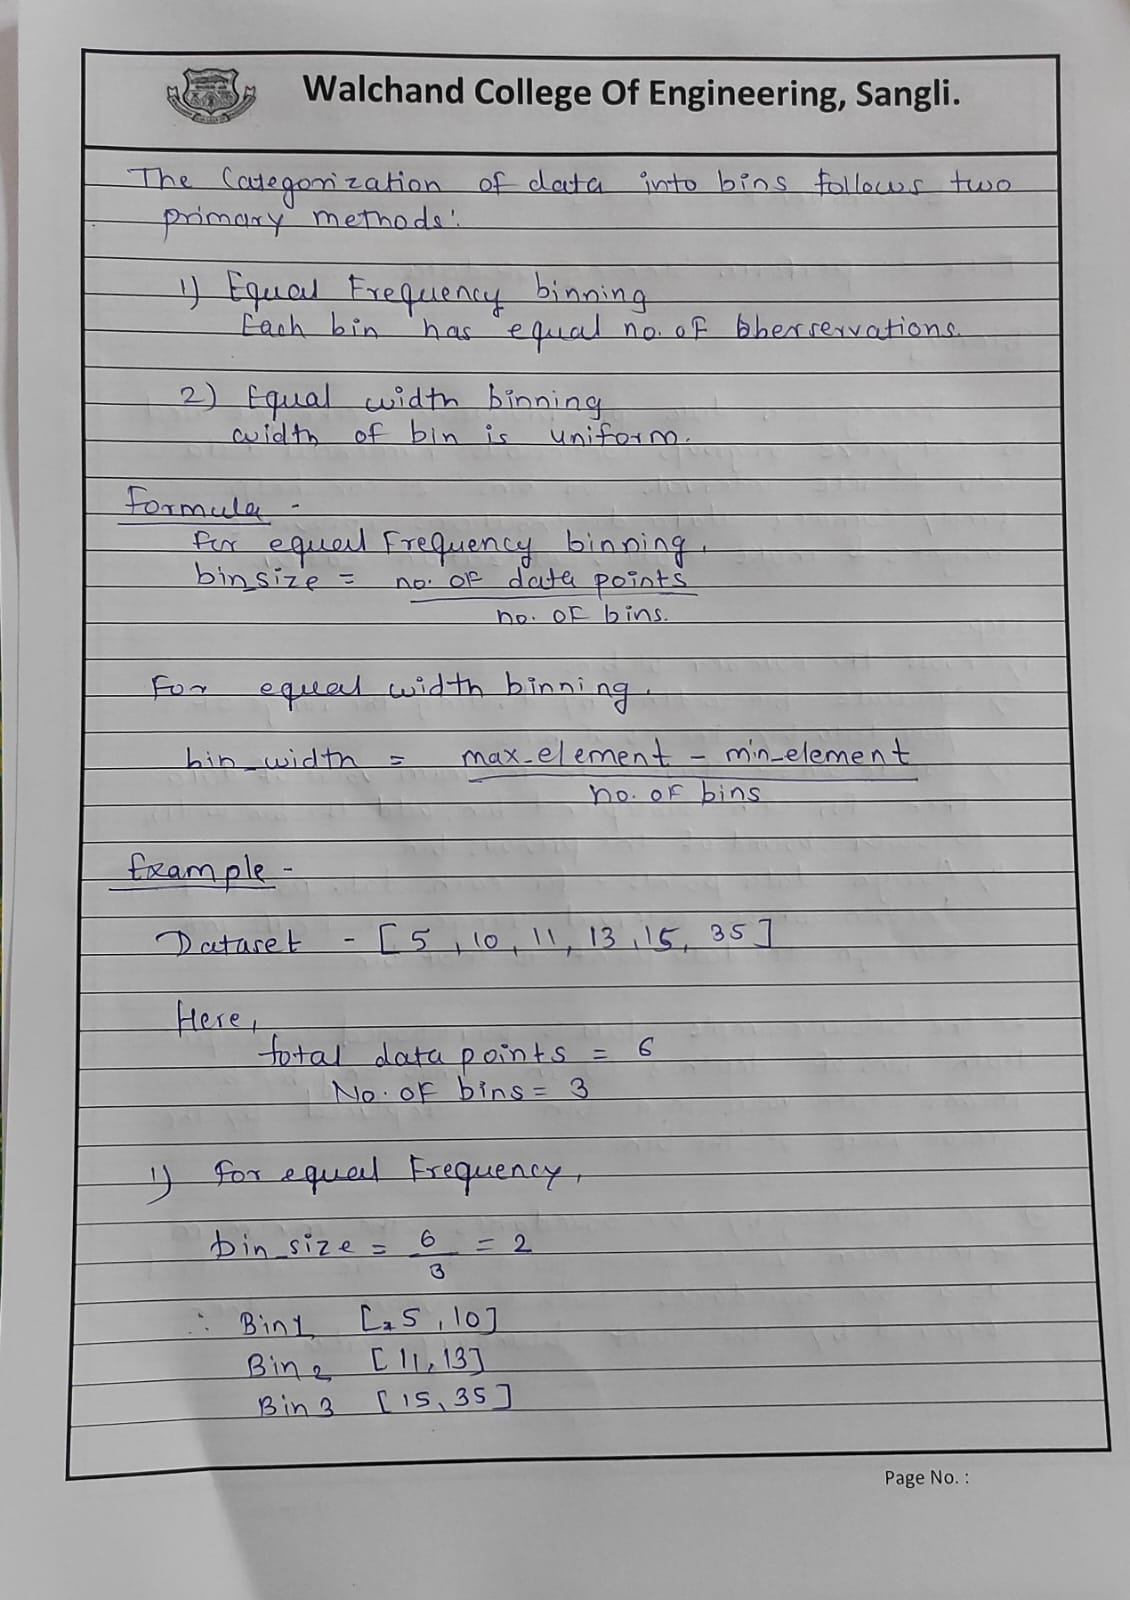 Walchand College Of Engineering, Sangli.
The Categorization of data into bins follows two
primary methods:
1) Equal Frequency binning
Each bin has equal no. of oberservations.
2) Equal width binning
width of bin is uniform.
Formula -
For equal Frequency binning,
bin_size = no. of data points
no. of bins.
For equal width binning,
bin_width = max_element - min_element
no. of bins
Example -
Dataset - [5, 10, 11, 13, 15, 35]
Here,
total data points = 6
No. of bins = 3
1) For equal Frequency,
bin_size = 6 = 2
3
∴ Bin1 [5, 10]
Bin 2 [11, 13]
Bin 3 [15, 35]
Page No. :